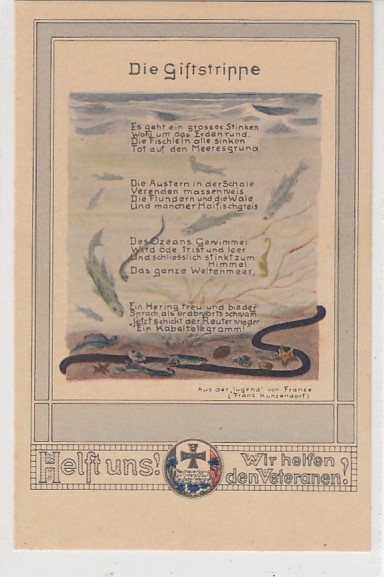 Die Giftstrippe
Es geht ein grosses Stinken
Wohl um das Erdenrund.
Die Fischlein alle sinken
Tot auf den Meeresgrund
Die Austern in der Schale
Verenden massenweis
Die Flundern und die Wale
Und mancher Haifischgreis
Des Ozeans Gewimmel
Wird öde trist und leer
Und schliesslich stinkt zum
Himmel
Das ganze Weltenmeer,
Ein Hering treu und bieder
Sprach, als er abwärts schwamm
„Jetzt schickt der Reuter wieder
Ein Kabeltelegramm!
Aus der „Jugend" von Franze
(Franz Kunzendorf)
Helft uns! Wir helfen
den Veteranen!